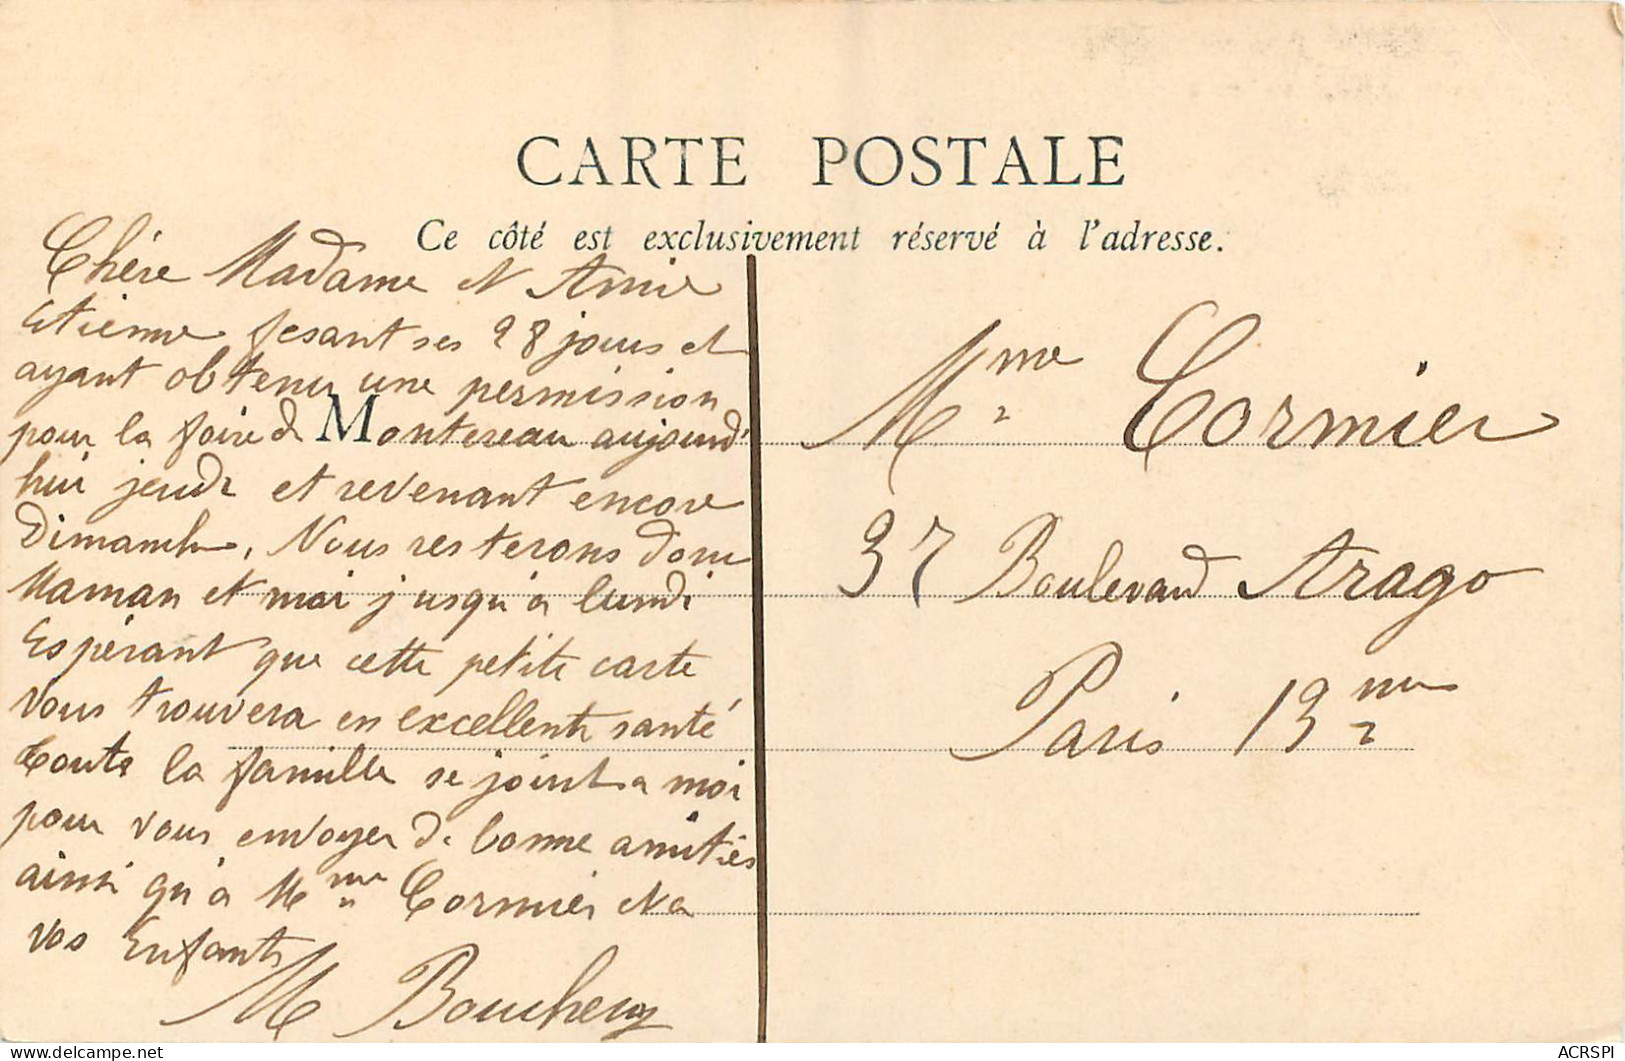 CARTE POSTALE
Ce côté est exclusivement réservé à l'adresse.
Chére Madame et Amie
Etienne fesant ses 28 jours et
ayant obtenu une permission
pour la foire de Montereau aujourd'
hui jeudi et revenant encore
Dimanche, Nous resterons donc
Maman et moi jusqu'à lundi
Espérant que cette petite carte
vous trouvera en excellente santé
Toute la famille se joint a moi
pour vous envoyer de bonne amitiés
ainsi qu'a Mme Cormier et a
vos Enfants
M Bouchery
Mme Cormier
37 Boulevard Arago
Paris 13me
ACRSPI